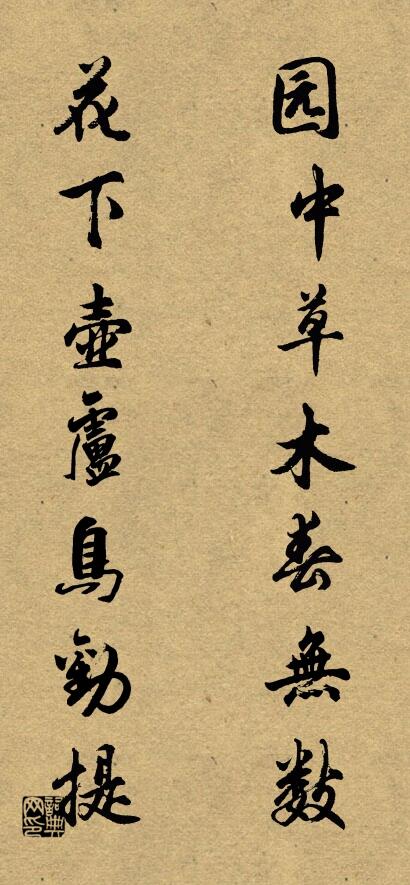 园中草木春無数
花下壺盧鳥勸提